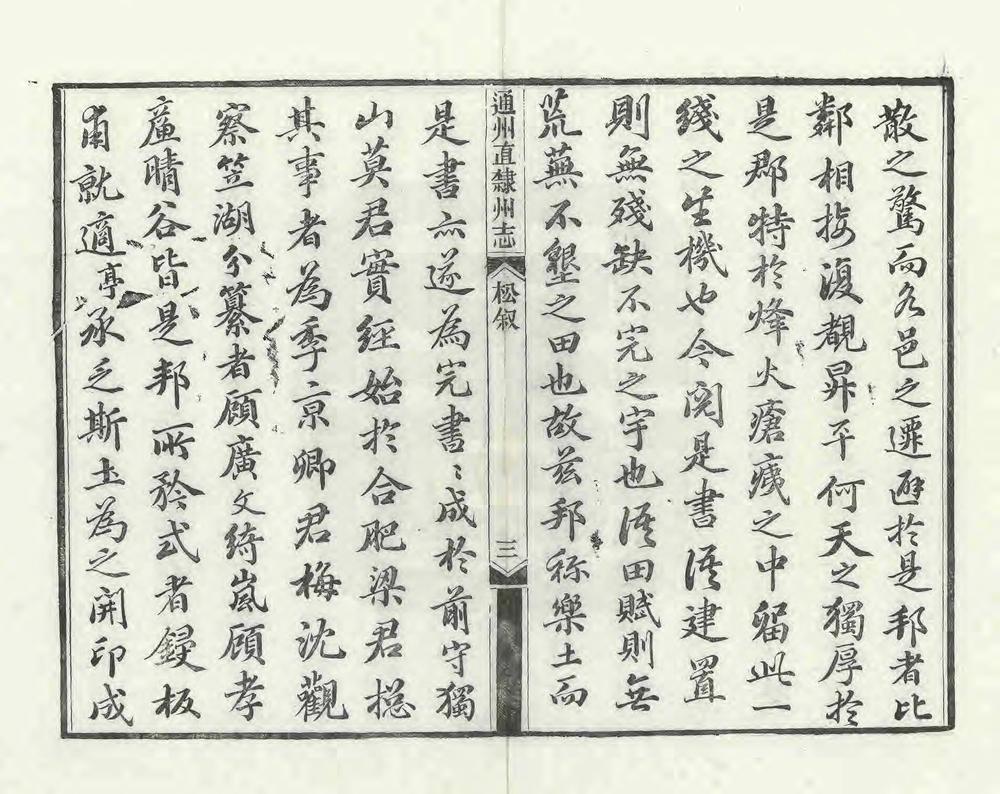 散之驚而各邑之遷避於是邦者比
鄰相接復覩昇平何天之獨厚於
是郡特於烽火瘡痍之中留此一
綫之生機也今閱是書語建置
則無殘缺不完之宇也語田賦則無
荒蕪不墾之田也故茲邦称樂土而
通州直隸州志
松叙
三
是書亦遂為完書〻成於前守獨
山莫君實經始於合肥梁君揔
其事者為季京卿君梅沈觀
察笠湖分纂者顧廣文綺嵐顧孝
廉晴谷皆是邦所矜式者鋟板
甫就適亭承乏斯土為之開印成